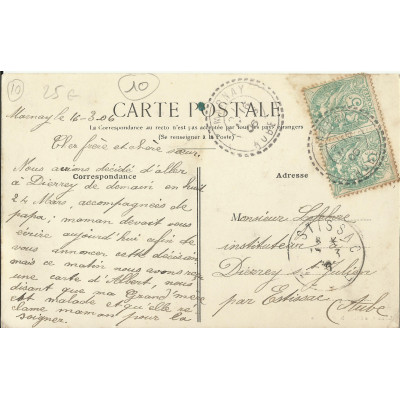 10
25 €
10
Marnay le 16-3.06
CARTE POSTALE
La Correspondance au recto n'est pas acceptée par tous les pays étrangers
(Se renseigner à la Poste)
Cher frère et chère sœur.
Correspondance
Nous avions décidé d'aller
à Dierrey de demain en huit
24 Mars, accompagnés de
papa; maman devait vous
écrire aujourd'hui afin de
vous annoncer cette décision
mais ce matin nous avons reçu
une carte d'Albert, nous
disant que ma Grand'mère
est malade et qu'elle
réclame maman pour la
soigner.
Adresse
Monsieur Lefebvre
instituteur
Dierrey St Julien
par Estissac
Aube
AUBE
ESTISSAC